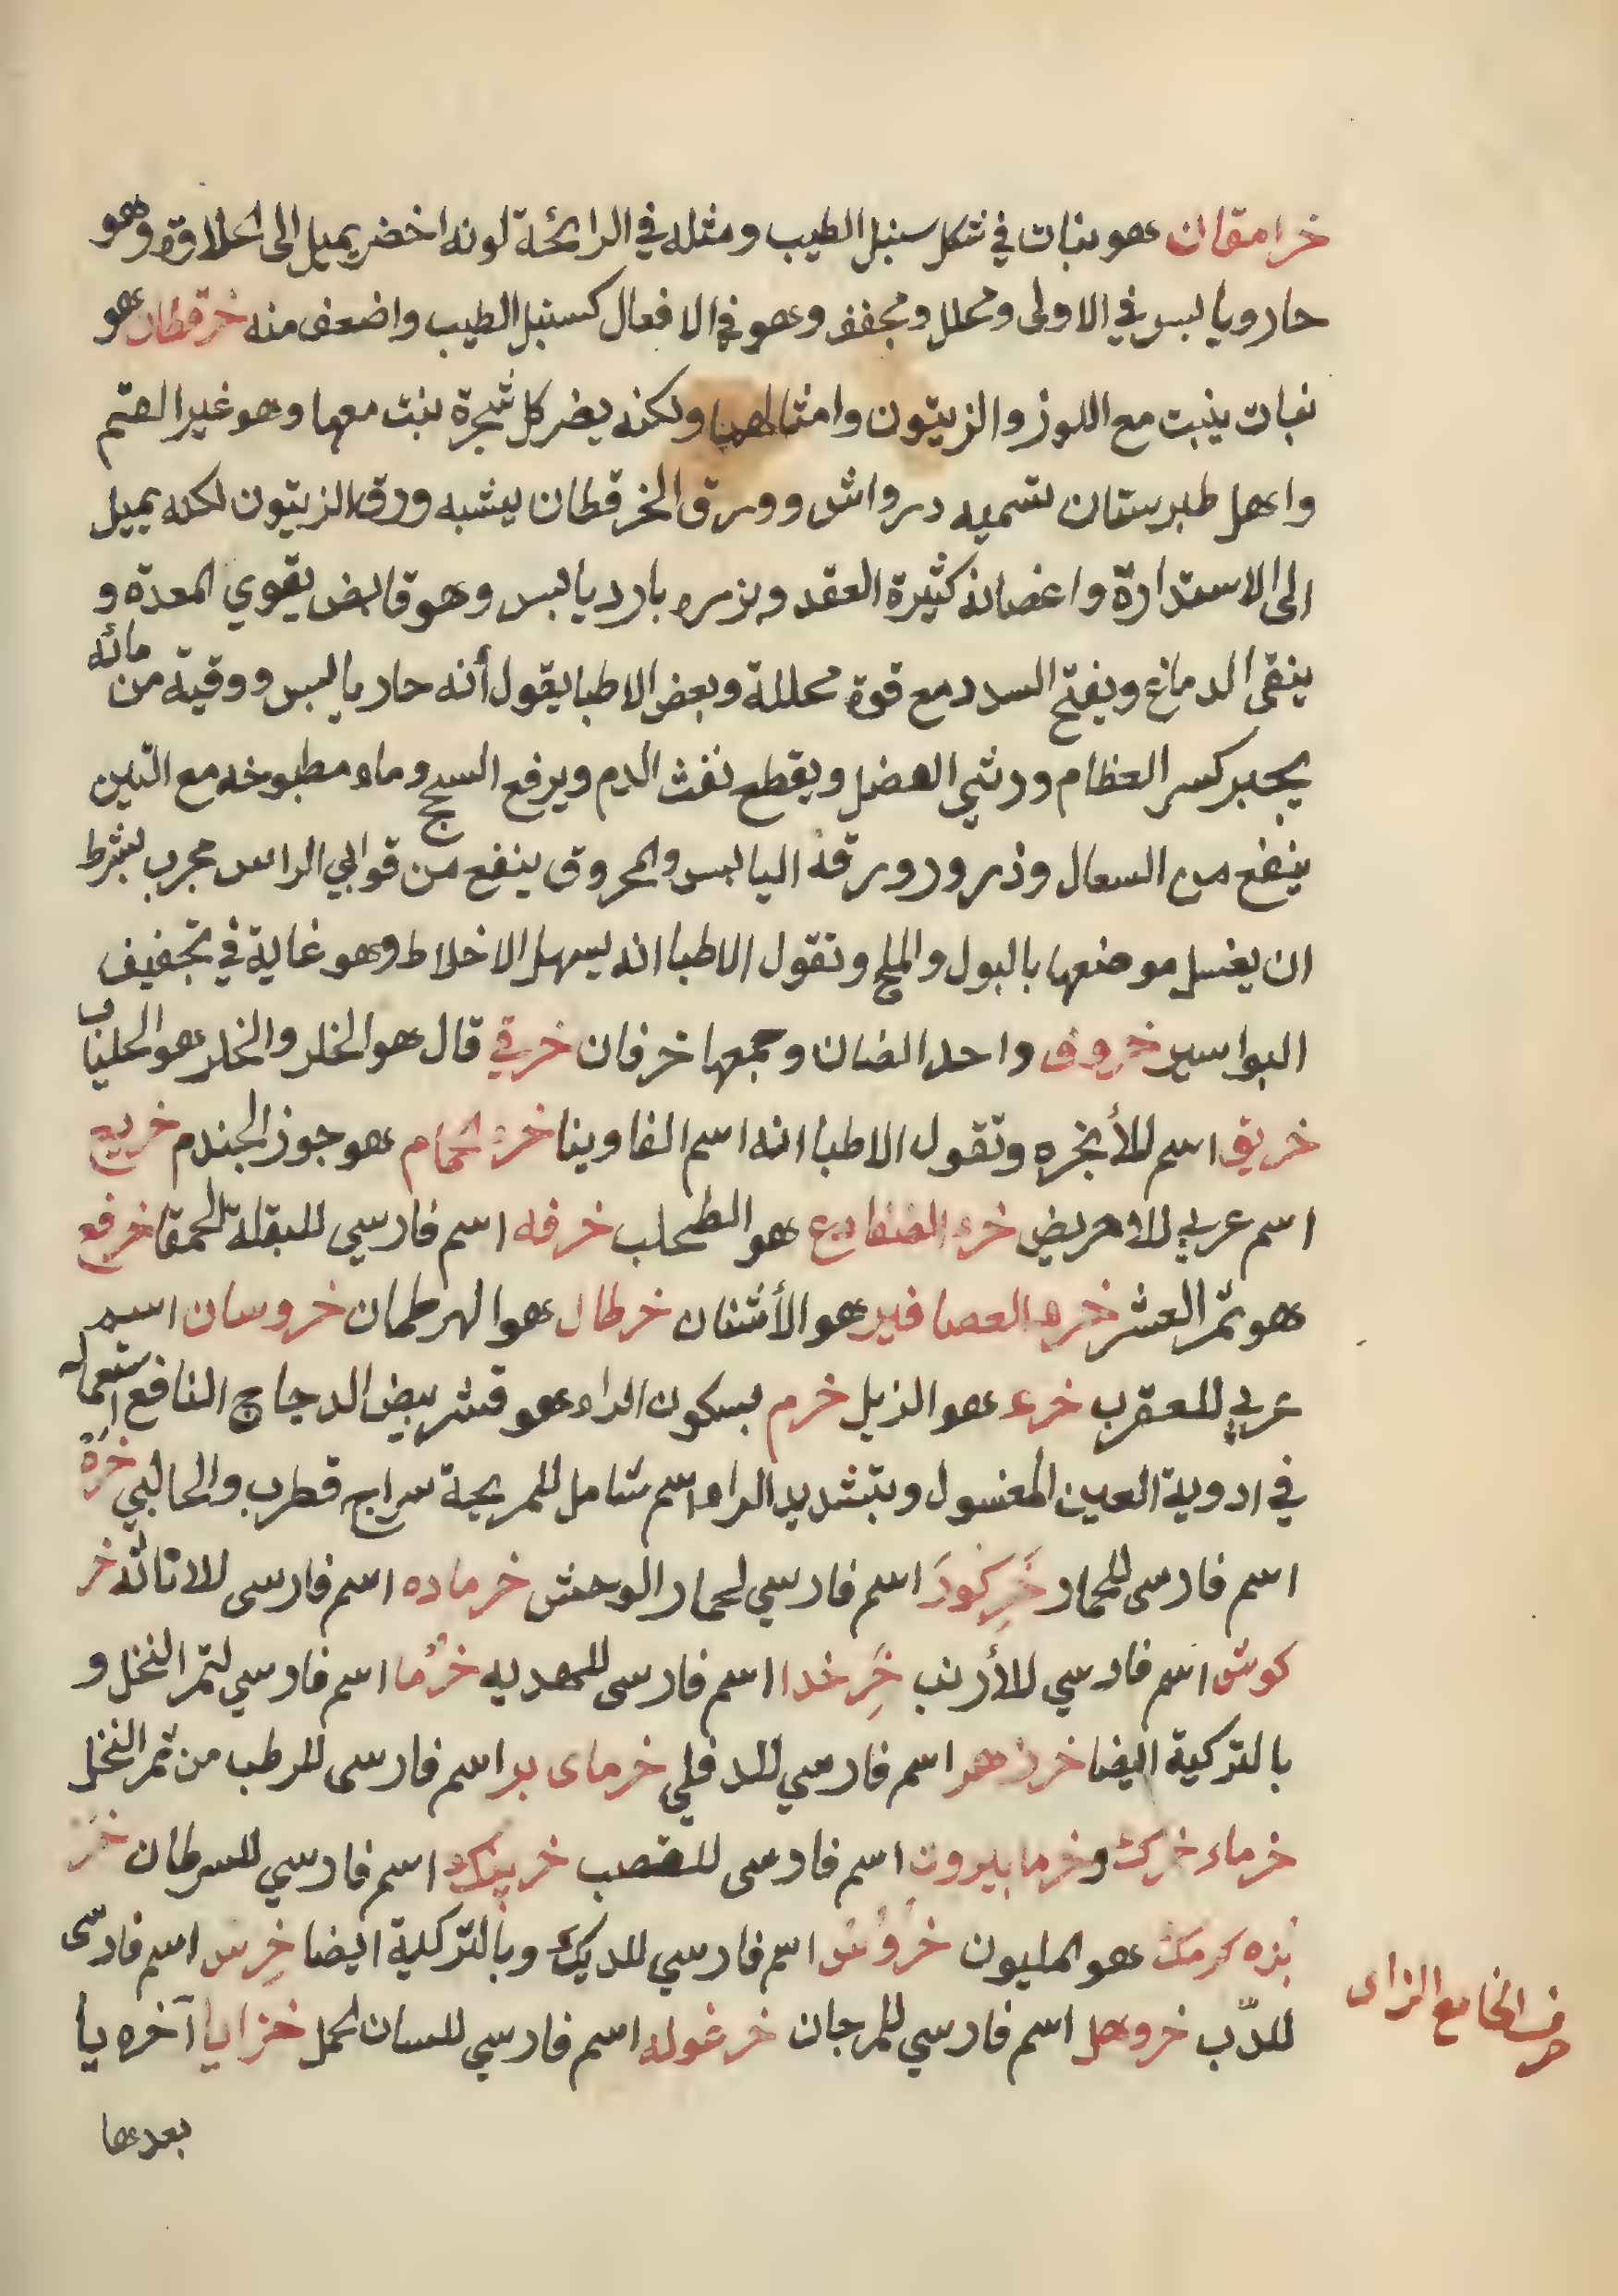 خرامقان هو نبات في شكل سنبل الطيب ومثله في الرائحة لونه اخضر يميل الى الحلاوة وهو
حار ويابس في الاولى ومحلل ومجفف وهو في الافعال كسنبل الطيب واضعف منه خرقطان هو
نبات ينبت مع اللوز والزيتون وامثالهما ولكنه يضر كل شجرة ينبت معها وهو غير العتم
واهل طبرستان تسميه درواش وورق الخرقطان يشبه ورق الزيتون لكنه يميل
الى الاستدارة واغصانه كثيرة العقد وبزره بارد يابس وهو قابض يقوي المعدة و
ينقى الدماغ ويفتح السدد مع قوة محللة وبعض الاطبا يقول أنه حار يابس ووقية من مائه
يجبر كسر العظام ووثي العضل ويقطع نفث الدم ويرفع السحج وماء مطبوخه مع التين
ينفع من السعال وذرور ورقه اليابس والمحروق ينفع من قوابي الراس مجرب بشرط
ان يغسل موضعها بالبول والملح وتقول الاطبا انه يسهل الاخلاط وهو غاية في تجفيف
البواسير خروف واحد الضان وجمعها خرفان خرقي قال هو الخلر والخلر هو الجلبان
خريق اسم للأنجره وتقول الاطبا انه اسم الفاوينا خرء الحمام هو جوز الجندم خريع
اسم عربي للاحريض خرء الضفادع هو الطحلب خرفه اسم فارسي للبقلة الحمقا خرفع
هو ثمر العشر خرء العصافير هو الأشنان خرطال هو الهرطمان خروسان اسم
عربي للعقرب خرء هو الزبل خرم بسكون الراء هو قشر بيض الدجاج النافع استعماله
في ادوية العين المغسول وبتشديد الراء اسم شامل للمريحة سراج قطرب والحالبي خره
اسم فارسى للحمار خَرِكَورَ اسم فارسي لحمار الوحش خرماده اسم فارسى للاتانه خر
كوش اسم فارسي للأرنب خَرِخدا اسم فارسى للهدبه خرُما اسم فارسي لتمر النخل و
بالتركية ايضا خرزهر اسم فارسي للدفلي خرماى بر اسم فارسى للرطب من تمر النخل
خرماء خرك وخرما بيرون اسم فارسى للقصب خربنك اسم فارسي للسرطان خر
بزه كرمك هو المليون خرُوُس اسم فارسي للديك وبالتركية ايضا خِرس اسم فارسى
للدّب خروهل اسم فارسي للمرجان خرغوله اسم فارسي للسان الحمل خزايا آخره يا
بعدها
حرف الخا مع الزاى